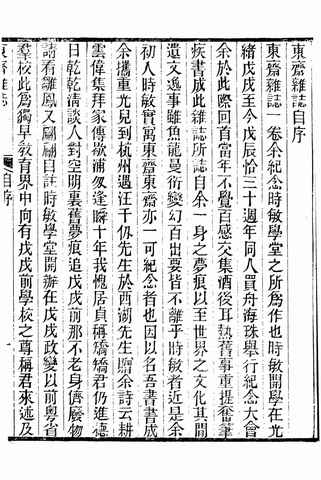 東齋雜誌自序
東齋雜誌一卷余紀念時敏學堂之所爲作也時敏開學在光
緒戊戌至今戊辰恰三十週年同人買舟海珠舉行紀念大會
余於此際回首當年不覺百感交集酒後耳熱舊事重提奮筆
疾書成此雜誌所誌自余一身之夢痕以至世界之文化其間
遺文逸事雖魚龍曼衍變幻百出要皆不離乎時敏者近是當
初人時敏實寓東齋東齋亦一可紀念者也因以名吾書書成
余攜重光兒到杭州遇汪千仭先生於西湖先生贈余詩云耕
雲偉集拜家傳歇浦匆逢瞬十年我愧居貞稱矯矯君仍進德
日乾乾淸談人對空明裏舊夢痕追戊戌前那不老身儕廢物
請看雛鳳又翩翩自註時敏學堂開辦在戊戌政變以前粤省
羣校此爲獨早敎育界中向有戊戌前學校之尊稱君來述及
東齋雜誌
自序
一